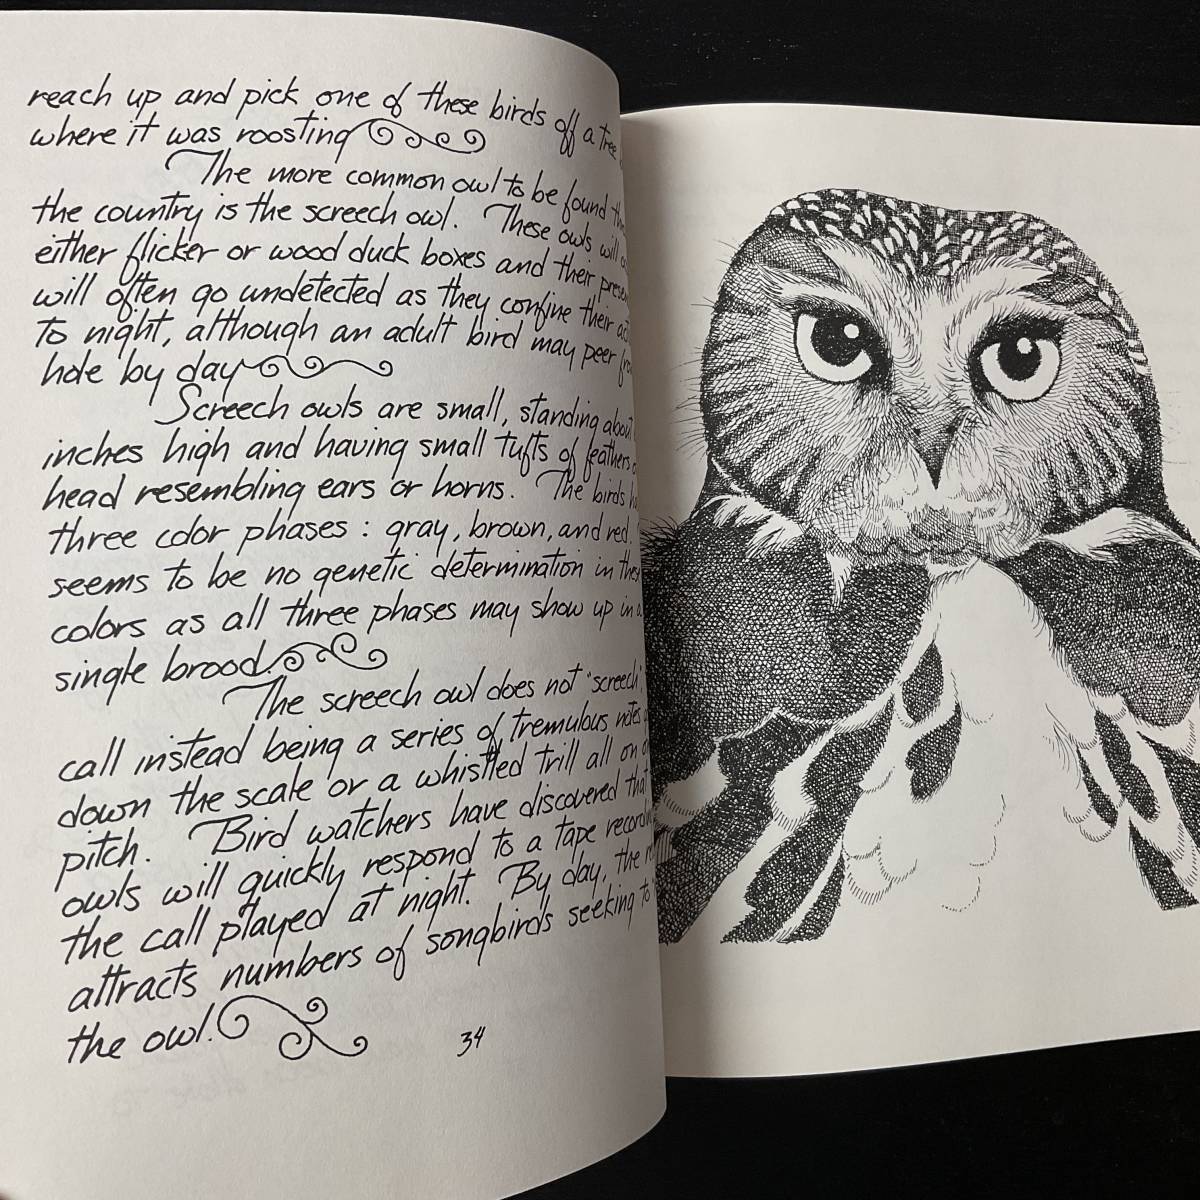 reach up and pick one of these birds off a tree
where it was roosting
The more common owl to be found
the country is the screech owl. These owls will
either flicker or wood duck boxes and their
will often go undetected as they confine their
to night, although an adult bird may peer
hole by day
Screech owls are small, standing about
inches high and having small tufts of feathers
head resembling ears or horns. The birds
three color phases: gray, brown, and red.
seems to be no genetic determination in these
colors as all three phases may show up in a
single brood.
The screech owl does not "screech",
call instead being a series of tremulous notes
down the scale or a whistled trill all on
pitch. Bird watchers have discovered that
owls will quickly respond to a tape
the call played at night. By day, the
attracts numbers of songbirds seeking to
the owl.
34